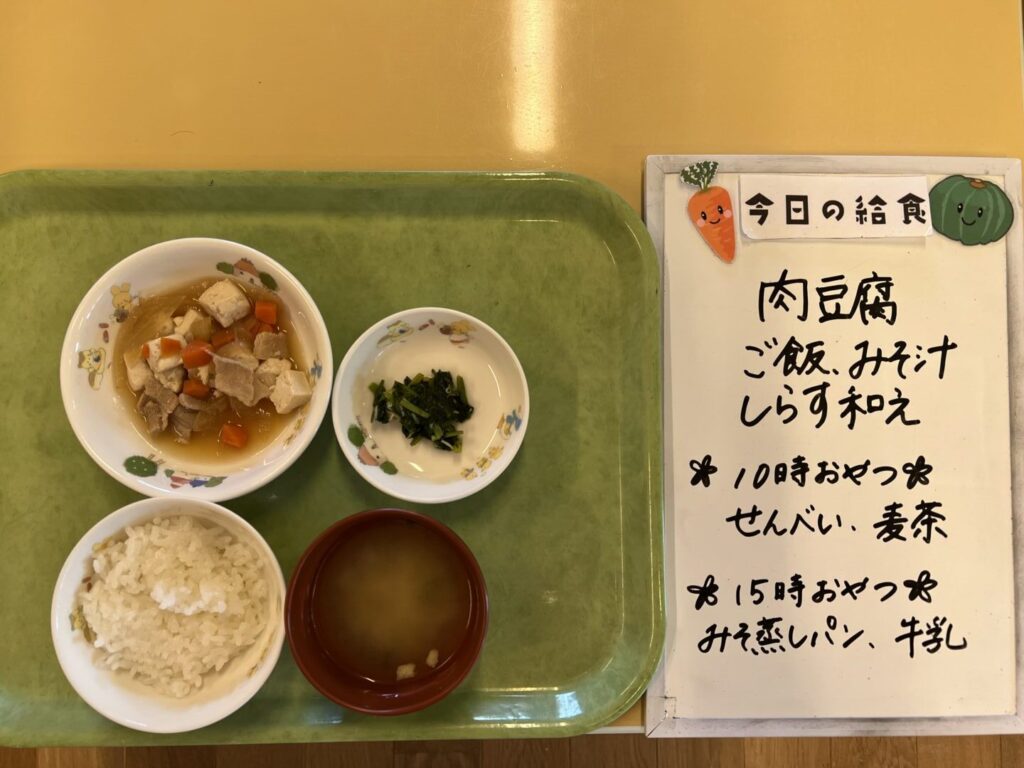 今日の給食
肉豆腐
ご飯、みそ汁
しらす和え
10時おやつ
せんべい、麦茶
15時おやつ
みそ蒸しパン、牛乳